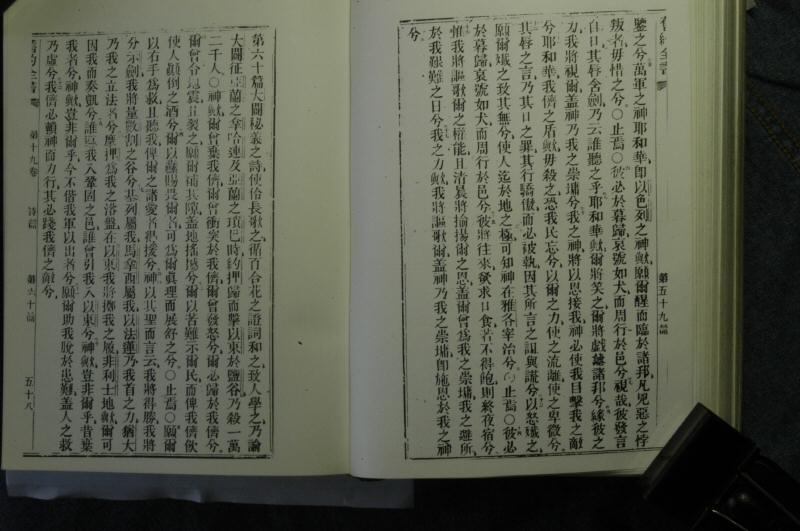 舊約全書
第五十九篇
鑒之兮萬軍之神耶和華卽以色列之神歟願爾醒而臨於諸邦凡兇惡之悖
叛者毋惜之兮○止焉○彼必於暮歸哀號如犬而周行於邑兮視哉彼發言
自口其脣含劍乃云誰聽之乎耶和華歟爾將笑之爾將戲謔諸邦兮緣彼之
力我將視爾蓋神乃我之崇墉兮我之神將以恩接我神必使我目擊我之敵
兮耶和華我儕之盾歟毋殺之恐我民忘兮以爾之力使之流離使之卑微兮
其脣之言乃其口之罪其行驕傲而必被執因其所言之詛與謊兮以怒殲之
願爾殲之致其無兮使人迄於地之極可知神在雅各宰治兮○止焉○彼必
於暮歸哀號如犬而周行於邑兮彼將往來欲求日食若不得飽則終夜宿兮
惟我將謳歌爾之權能且清晨將揄揚爾之恩蓋爾曾爲我之崇墉我之避所
於我艱難之日兮我之力歟我將謳歌爾蓋神乃我之崇墉卽施恩於我之神
兮
第六十篇大闢秘義之詩使伶長歌之循百合花之證詞和之致人學之乃論
大闢征亞蘭之拿哈連及亞蘭之瑣巴時約押歸而擊以東於鹽谷乃殺一萬
二千人○神歟爾曾棄我儕爾曾衝突於我儕爾曾發怒兮爾必歸於我儕兮
爾曾令地震且裂之願爾補其隙蓋地搖撼兮爾以苦難示爾民而俾我儕飲
使人顛倒之酒兮爾以纛賜畏爾者可爲爾眞理而展舒之兮○止焉○願爾
以右手爲救且聽我俾爾之諸愛者得援兮神以其聖而言云我將得勝我將
分示劍我將量數割之谷兮基列屬我馬拿西屬我以法蓮乃我首之力猶大
乃我之立法者兮摩押爲我之浴盤在以東我將擲我之履非利士地歟爾可
因我而奏凱兮誰導我入鞏固之邑誰曾引我入以東兮神歟豈非爾乎昔棄
我者兮神歟豈非爾乎今不偕我軍以出者兮願爾助我脫於患難蓋人之救
乃虛兮我儕必賴神而力行其必踐我儕之敵兮
舊約全書
第十九卷
詩篇
第六十篇
五十八